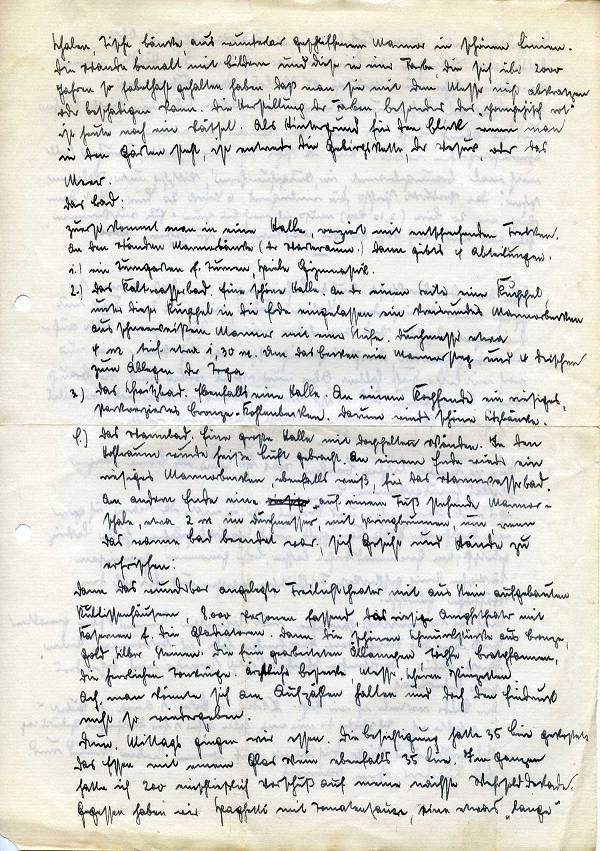 Schalen, Tische, Bänke, aus wunderbar geschliffenem Marmor in schönen Linien.
Die Wände bemalt mit Bildern und diese in einer Farbe die sich über 2000
Jahren so fabelhaft gehalten haben daß man sie mit dem Messer nicht abkratzen
oder beschädigen kann. Die Herstellung der Farben besonders des „pompejisch rot"
ist heute noch ein Rätsel. Als Hintergrund für den Blick, wenn man
in den Gärten steht, ist entweder die Gebirgskette, der Vesuv, oder das
Meer.
Das Bad:
Zuerst kommt man in eine Halle, verziert mit entsprechenden Fresken.
An den Wänden Marmorbänke (der Warteraum.) Dann gibts 4 Abteilungen.
1.) ein Turngarten f. Turnen, Spiele Gymnastik.
2.) Das Kaltwasserbad. Eine schöne Halle. An der einen Seite eine Kuppel,
unter dieser Kuppel in die Erde eingelassen ein kreisrundes Marmorbecken
aus schneeweißem Marmor mit einer Stufe. Durchmesser etwa
4 m, tief etwa 1,30 m. Um das Becken ein Marmorsteg und 4 Nischen
zum Ablegen der Toga.
3.) Das Schwitzbad. Ebenfalls eine Halle. An einem Kopfende ein riesiges,
verziertes Bronze-Kohlenbecken. Darum rund schöne Sitzbänke.
4.) Das Warmbad. Eine große Halle mit doppelten Wänden. In den
Hohlraum wurde heiße Luft gebracht. An einem Ende wieder ein
riesiges Marmorbecken ebenfalls weiß, für das Warmwasserbad.
Am andern Ende eine auf einem Fuß stehende Marmor-
schale, etwa 2 m im Durchmesser, mit Springbrunnen, um wenn
das warme Bad beendet war, sich Gesicht und Hände zu
erfrischen.
Dann das wunderbar angelegte Freilichttheater mit aus Stein aufgebauten
Kulissenhäusern, 8.000 Personen fassend, das riesige Amphitheater mit
Kasernen f. die Gladiatoren. Dann die schönen Schmuckstücke aus Bronze,
Gold, Silber, Steinen. Die fein gearbeiteten Öllampen, Töpfe, Bratpfannen,
die herrlichen Tonkrüge. Ärztliche Bestecke, Messer, Scheren, Pinzetten.
Ach, man könnte sich am Aufzählen halten und doch den Eindruck
nicht so wiedergeben.
Dann, Mittags gingen wir essen. Die Besichtigung hatte 35 Lire gekostet,
das Essen mit einem Glas Wein ebenfalls 35 Lire. Im ganzen
hatte ich 200 einschließlich Vorschuß auf meine nächste
Gegessen haben wir Spaghetti mit Tomatensauce, eine etwas „lange"